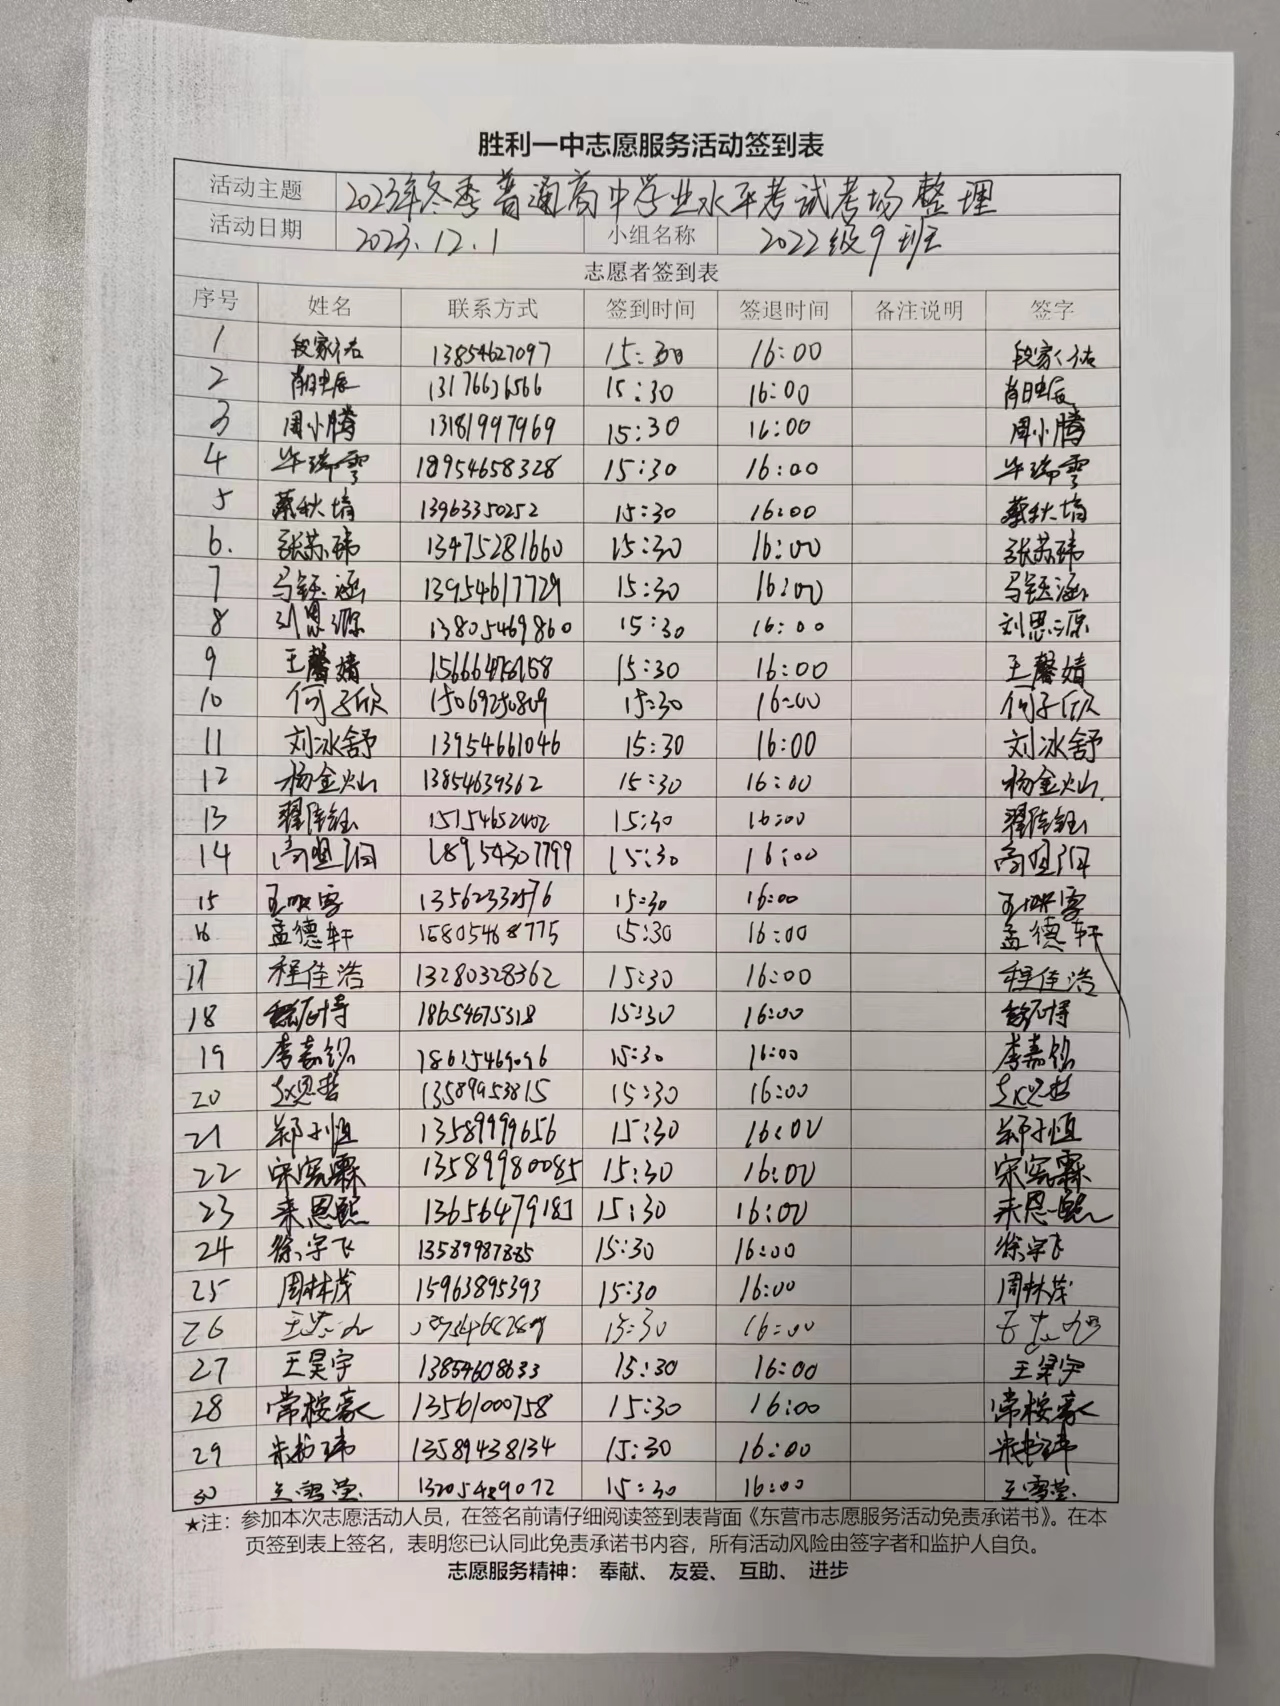 胜利一中志愿服务活动签到表
活动主题 2023年冬季普通高中学业水平考试考场整理
活动日期 2023.12.1 小组名称 2022级9班
志愿者签到表
序号 姓名 联系方式 签到时间 签退时间 备注说明 签字
1 段家祜 13854627097 15:30 16:00 段家祜
2 13176636566 15:30 16:00
3 周小腾 13181997969 15:30 16:00 周小腾
4 毕瑞雪 18954658328 15:30 16:00 毕瑞雪
5 蔡秋堉 13963350252 15:30 16:00 蔡秋堉
6. 张苏玮 13475281660 15:30 16:00 张苏玮
7 马钰涵 13954617729 15:30 16:00 马钰涵
8 刘思源 13805469860 15:30 16:00 刘思源
9 王馨婧 15:30 16:00 王馨婧
10 何子欣 15069250809 15:30 16:00 何子欣
11 刘冰舒 13954661046 15:30 16:00 刘冰舒
12 杨金灿 13854639362 15:30 16:00 杨金灿
13 翟佳钰 15154652402 15:30 16:00 翟佳钰
14 18954307799 15:30 16:00
15 王映雪 13562332576 15:30 16:00 王映雪
16 孟德轩 15805468775 15:30 16:00 孟德轩
17 程佳浩 13280328362 15:30 16:00 程佳浩
18 18654675318 15:30 16:00
19 李嘉铭 18615469096 15:30 16:00 李嘉铭
20 赵思哲 13589953815 15:30 16:00 赵思哲
21 郑子恒 13589999656 15:30 16:00 郑子恒
22 宋宪霖 13589980085 15:30 16:00 宋宪霖
23 来恩熙 13656479185 15:30 16:00 来恩熙
24 徐宇飞 13589987885 15:30 16:00 徐宇飞
25 周林茂 15963895393 15:30 16:00 周林茂
26 15:30 16:00
27 王昊宇 13854608633 15:30 16:00 王昊宇
28 常桉豪 13561000758 15:30 16:00 常桉豪
29 朱书玮 13589438134 15:30 16:00 朱书玮
30 王雪莹 13205489072 15:30 16:00 王雪莹
★注：参加本次志愿活动人员，在签名前请仔细阅读签到表背面《东营市志愿服务活动免责承诺书》。在本
页签到表上签名，表明您已认同此免责承诺书内容，所有活动风险由签字者和监护人自负。
志愿服务精神： 奉献、 友爱、 互助、 进步